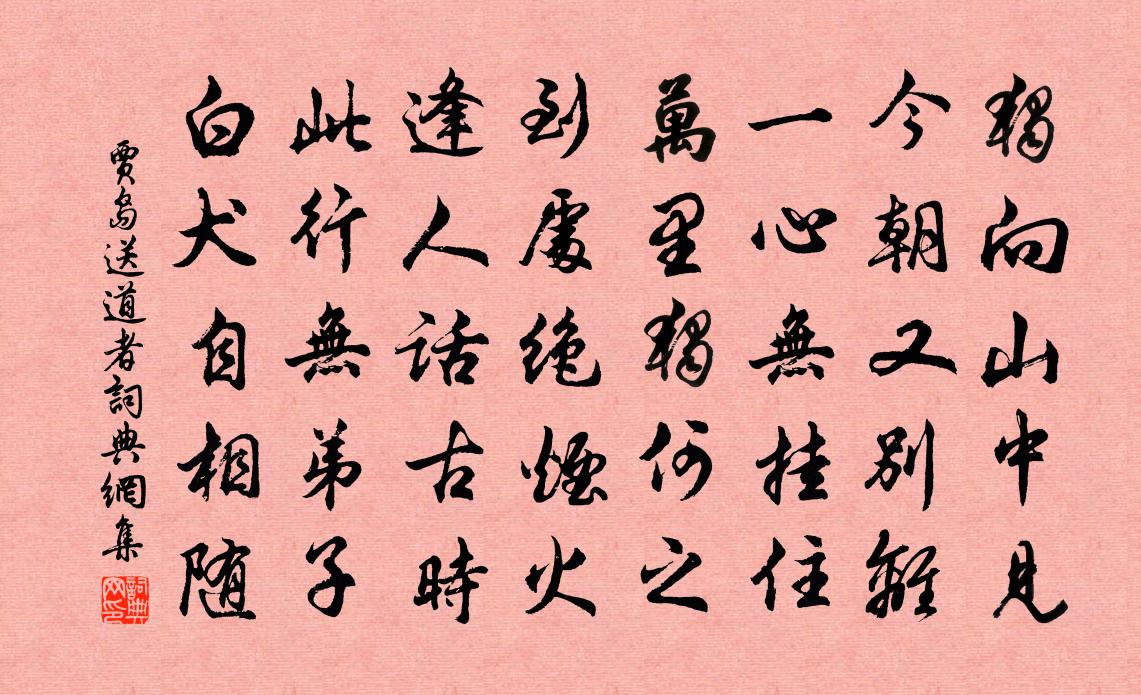 獨向山中見
今朝又別離
一心無挂住
萬里獨何之
到處絕煙火
逢人話古時
此行無弟子
白犬自相随
賈島送道者詞典網集
詞典网印